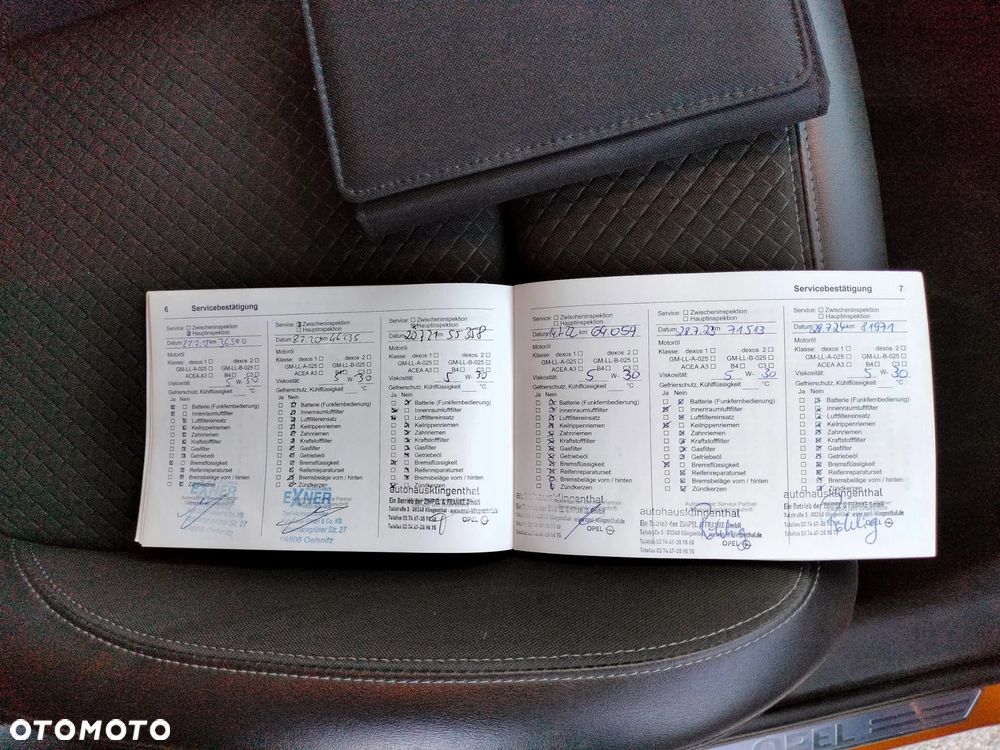 6 Servicebestätigung
Service: Zwischeninspektion
Hauptinspektion
Datum 22.7. km 36590
Motoröl
Klasse: dexos 1 dexos 2
GM-LL-A-025 GM-LL-B-025
ACEA A3 B4 C3
Viskosität: 5 W- 30
Gefrierschutz, Kühlflüssigkeit °C
Ja Nein
Batterie (Funkfernbedienung)
Innenraumluftfilter
Luftfiltereinsatz
Keilrippenriemen
Zahnriemen
Kraftstofffilter
Gasfilter
Getriebeöl
Bremsflüssigkeit
Reifenreparaturset
Bremsbeläge vorn / hinten
Zündkerzen
Service: Zwischeninspektion
Hauptinspektion
Datum 8.7.20 km
Motoröl
Klasse: dexos 1 dexos 2
GM-LL-A-025 GM-LL-B-025
ACEA A3 B4 C3
Viskosität: 5 W- 30
Gefrierschutz, Kühlflüssigkeit °C
Ja Nein
Batterie (Funkfernbedienung)
Innenraumluftfilter
Luftfiltereinsatz
Keilrippenriemen
Zahnriemen
Kraftstofffilter
Gasfilter
Getriebeöl
Bremsflüssigkeit
Reifenreparaturset
Bremsbeläge vorn / hinten
Zündkerzen
EXNER
& Co. KG
Str. 27
08606 Oelsnitz
Service: Zwischeninspektion
Hauptinspektion
Datum 20.7.21 km 55358
Motoröl
Klasse: dexos 1 dexos 2
GM-LL-A-025 GM-LL-B-025
ACEA A3 B4 C3
Viskosität: 5 W- 30
Gefrierschutz, Kühlflüssigkeit °C
Ja Nein
Batterie (Funkfernbedienung)
Innenraumluftfilter
Luftfiltereinsatz
Keilrippenriemen
Zahnriemen
Kraftstofffilter
Gasfilter
Getriebeöl
Bremsflüssigkeit
Reifenreparaturset
Bremsbeläge vorn / hinten
Zündkerzen
autohausklingenthal
Ein Betrieb der ZÜMPEL & FRANKE GmbH
Talstraße 3 · 08248 Klingenthal · www.opel-klingenthal.de
Telefon 03 74 67-28 98 68
Telefax 03 74 67-28 98 75 OPEL
Servicebestätigung 7
Service: Zwischeninspektion
Hauptinspektion
Datum 14.7.22 km 64059
Motoröl
Klasse: dexos 1 dexos 2
GM-LL-A-025 GM-LL-B-025
ACEA A3 B4 C3
Viskosität: 5 W- 30
Gefrierschutz, Kühlflüssigkeit °C
Ja Nein
Batterie (Funkfernbedienung)
Innenraumluftfilter
Luftfiltereinsatz
Keilrippenriemen
Zahnriemen
Kraftstofffilter
Gasfilter
Getriebeöl
Bremsflüssigkeit
Reifenreparaturset
Bremsbeläge vorn / hinten
Zündkerzen
autohausklingenthal
Ein Betrieb der ZÜMPEL & FRANKE GmbH
OPEL
Service: Zwischeninspektion
Hauptinspektion
Datum 28.7.23 km 71513
Motoröl
Klasse: dexos 1 dexos 2
GM-LL-A-025 GM-LL-B-025
ACEA A3 B4 C3
Viskosität: 5 W- 30
Gefrierschutz, Kühlflüssigkeit °C
Ja Nein
Batterie (Funkfernbedienung)
Innenraumluftfilter
Luftfiltereinsatz
Keilrippenriemen
Zahnriemen
Kraftstofffilter
Gasfilter
Getriebeöl
Bremsflüssigkeit
Reifenreparaturset
Bremsbeläge vorn / hinten
Zündkerzen
autohausklingenthal
Ein Betrieb der ZÜMPEL & FRANKE GmbH
OPEL
Service: Zwischeninspektion
Hauptinspektion
Datum 29.7.24 km 81971
Motoröl
Klasse: dexos 1 dexos 2
GM-LL-A-025 GM-LL-B-025
ACEA A3 B4 C3
Viskosität: 5 W- 30
Gefrierschutz, Kühlflüssigkeit °C
Ja Nein
Batterie (Funkfernbedienung)
Innenraumluftfilter
Luftfiltereinsatz
Keilrippenriemen
Zahnriemen
Kraftstofffilter
Gasfilter
Getriebeöl
Bremsflüssigkeit
Reifenreparaturset
Bremsbeläge vorn / hinten
Zündkerzen
autohausklingenthal
Ein Betrieb der ZÜMPEL & FRANKE GmbH
OPEL
OTOMOTO